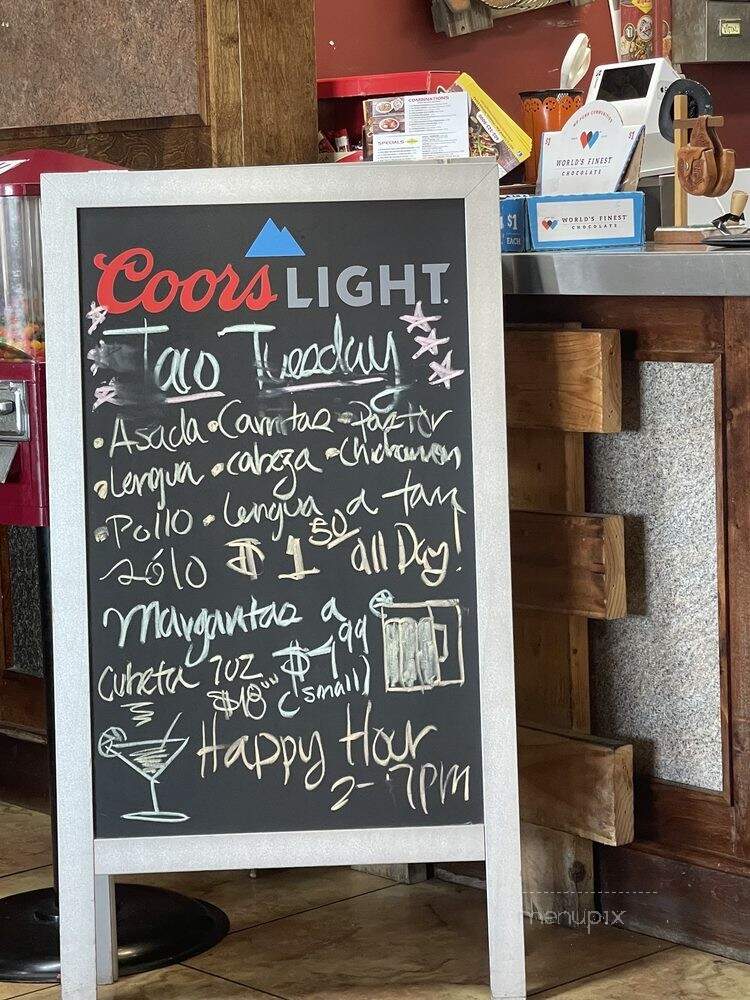 COMBINATIONS
SPECIALS
WORLD'S FINEST
CHOCOLATE
$1
EACH
WORLD'S FINEST
CHOCOLATE
Coors LIGHT
Taco Tuesday
• Asada • Carnitas • Pastor
• Lengua • cabeza •
• Pollo • Lengua a
sólo $1 50 all Day!
Margaritas a
$ 99
Cubeta 7oz
$18 (small)
Happy Hour
2-7pm
menupix